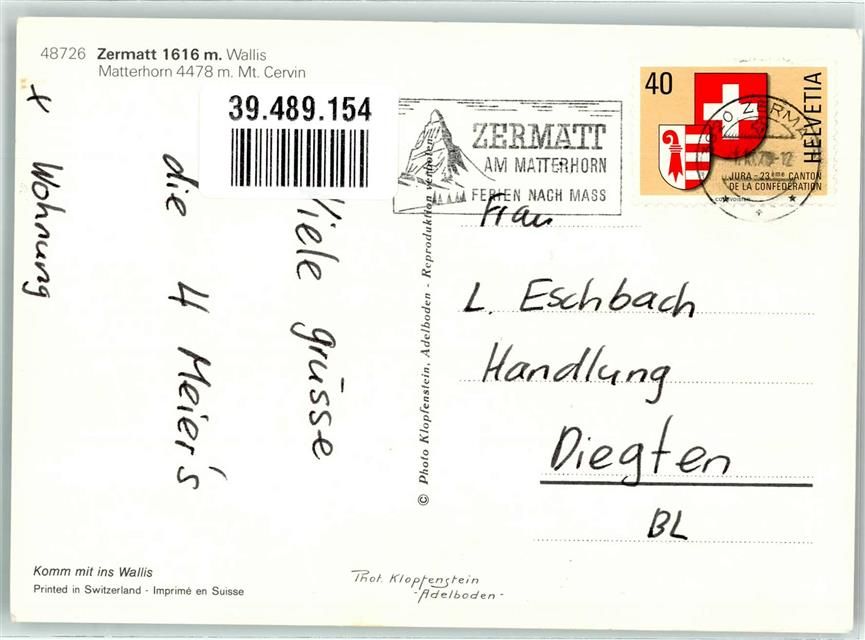 48726 Zermatt 1616 m. Wallis
Matterhorn 4478 m. Mt. Cervin
39.489.154
x Wohnung
Viele grüsse
die 4 Meier's
ZERMATT
AM MATTERHORN
FERIEN NACH MASS
40
HELVETIA
JURA - 23ème CANTON
DE LA CONFÉDÉRATION
Frau
L. Eschbach
Handlung
Diegten
BL
© Photo Klopfenstein, Adelboden - Reproduktion verboten
Komm mit ins Wallis
Printed in Switzerland - Imprimé en Suisse
Phot. Klopfenstein
- Adelboden -